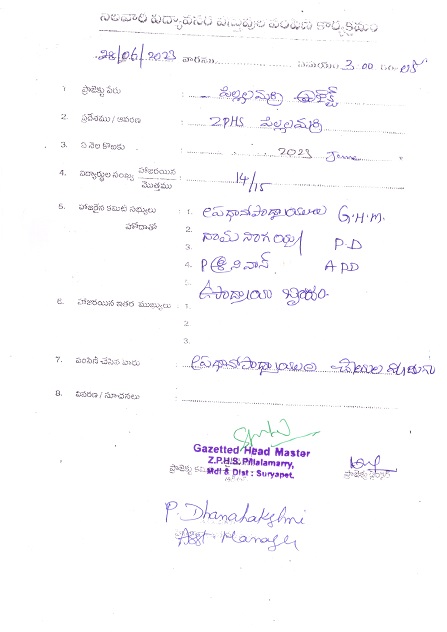 నిలవారి విద్యావసర వస్తువుల పంపిణి కార్యక్రమం
28/06/2023 వారము సమయం 3.00
1. ప్రాజెక్టు పేరు పిల్లలమర్రి
2. ప్రదేశము / ఆవరణ ZPHS పిల్లలమర్రి
3. ఏ నెల కొఱకు 2023 June
4. విద్యార్థుల సంఖ్య హాజరయిన / మొత్తము 14/15
5. హాజరైన కమిటి సభ్యులు 1. ప్రధానోపాధ్యాయులు G.H.M.
హోదాతో 2.
3. P.D
4. P శ్రీనివాస్ APD
6. హాజరయిన ఇతర ముఖ్యులు 1. ఉపాధ్యాయ బృందం.
2.
3.
7. పంపిణీ చేసిన వారు ప్రధానోపాధ్యాయులు
8. వివరణ / సూచనలు
Gazetted Head Master
Z.P.H.S. Pillalamarry,
Mdl & Dist : Suryapet.
P. Dhanalakshmi
Asst. Manager